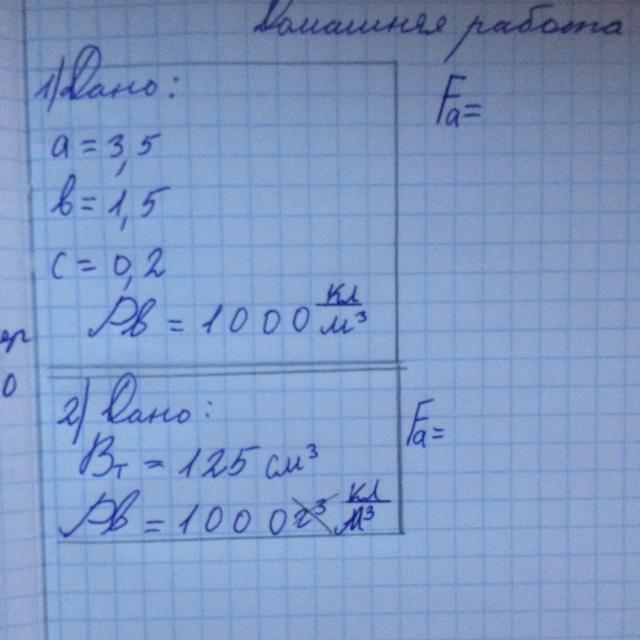 Домашняя работа
1) Дано:
a = 3,5
b = 1,5
c = 0,2
ρв = 1000 кг/м³
Fa =
2) Дано:
Vт = 125 см³
ρв = 1000 кг/м³
Fa =